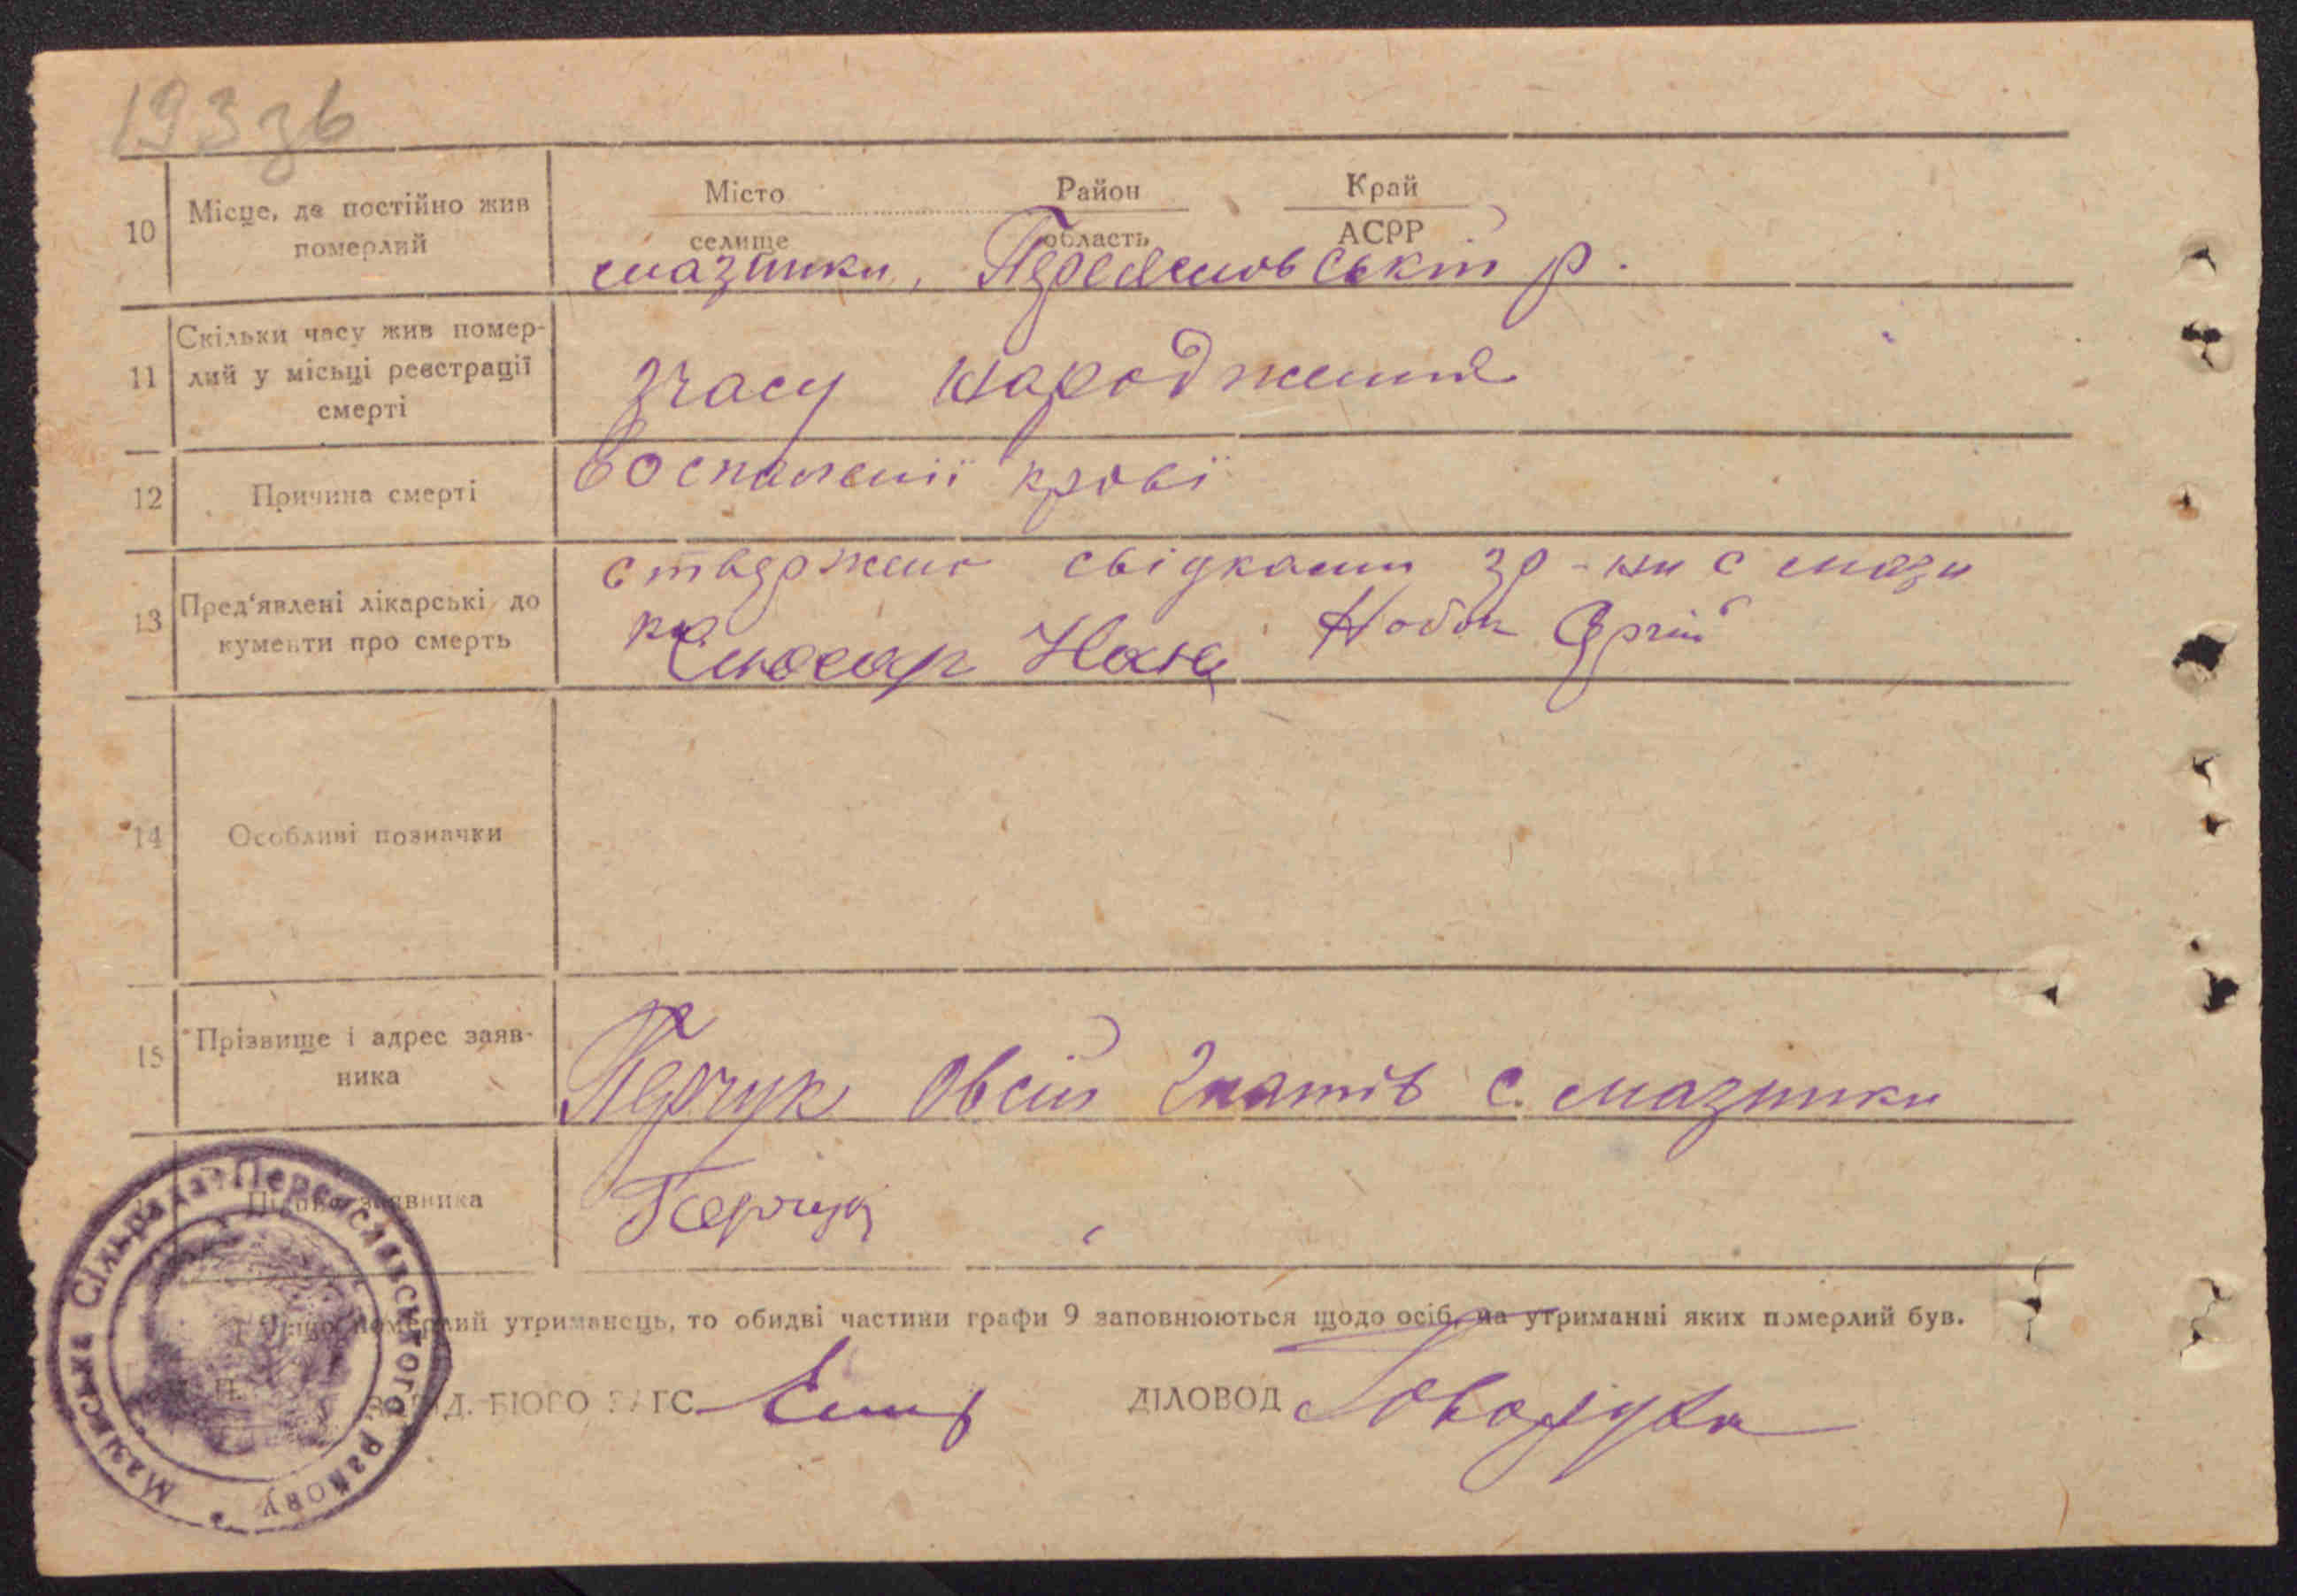 193 зв
10 Місце, де постійно жив померлий
Місто Район Край
селище область АСРР
мазінки, Переяславській р.
11 Скільки часу жив помер-
лий у місьці реєстрації
смерті
зчасу народження
12 Причина смерті
Воспаленії крові
13 Пред'явлені лікарські до
кументи про смерть
ствержено свідками гр-ни с мази
нки Нобок
Слюсар
14 Особливі позначки
15 Прізвище і адрес заяв-
ника
Перчук Овсій Гнатів с. мазінки
Підпис заявника
Перчук
Якщо померлий утриманець, то обидві частини графи 9 заповнюються щодо осіб, на утриманні яких померлий був.
М. П.
ЗАВІД. БЮРО ЗАГС
ДІЛОВОД
Мазінська Сільрада Переяславського району